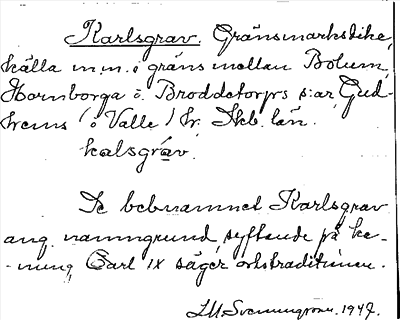 Karlsgrav. Gränsmarksdike,
källa m.m. i gräns mellan Bolum,
Hornborga o. Broddetorps s:ar, Gud-
hems / o Valle / hr. Skb. län.
kalsgräv.
Se bebnamnet Karlsgrav
ang. namngrund, syftande på ko-
nung Carl IX säger ortstraditionen.
1947.